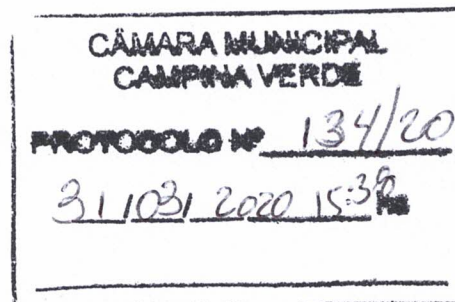 CÂMARA MUNICIPAL
CAMPINA VERDE
PROTOCOLO Nº 134/20
31/03/2020 15:30 Hs